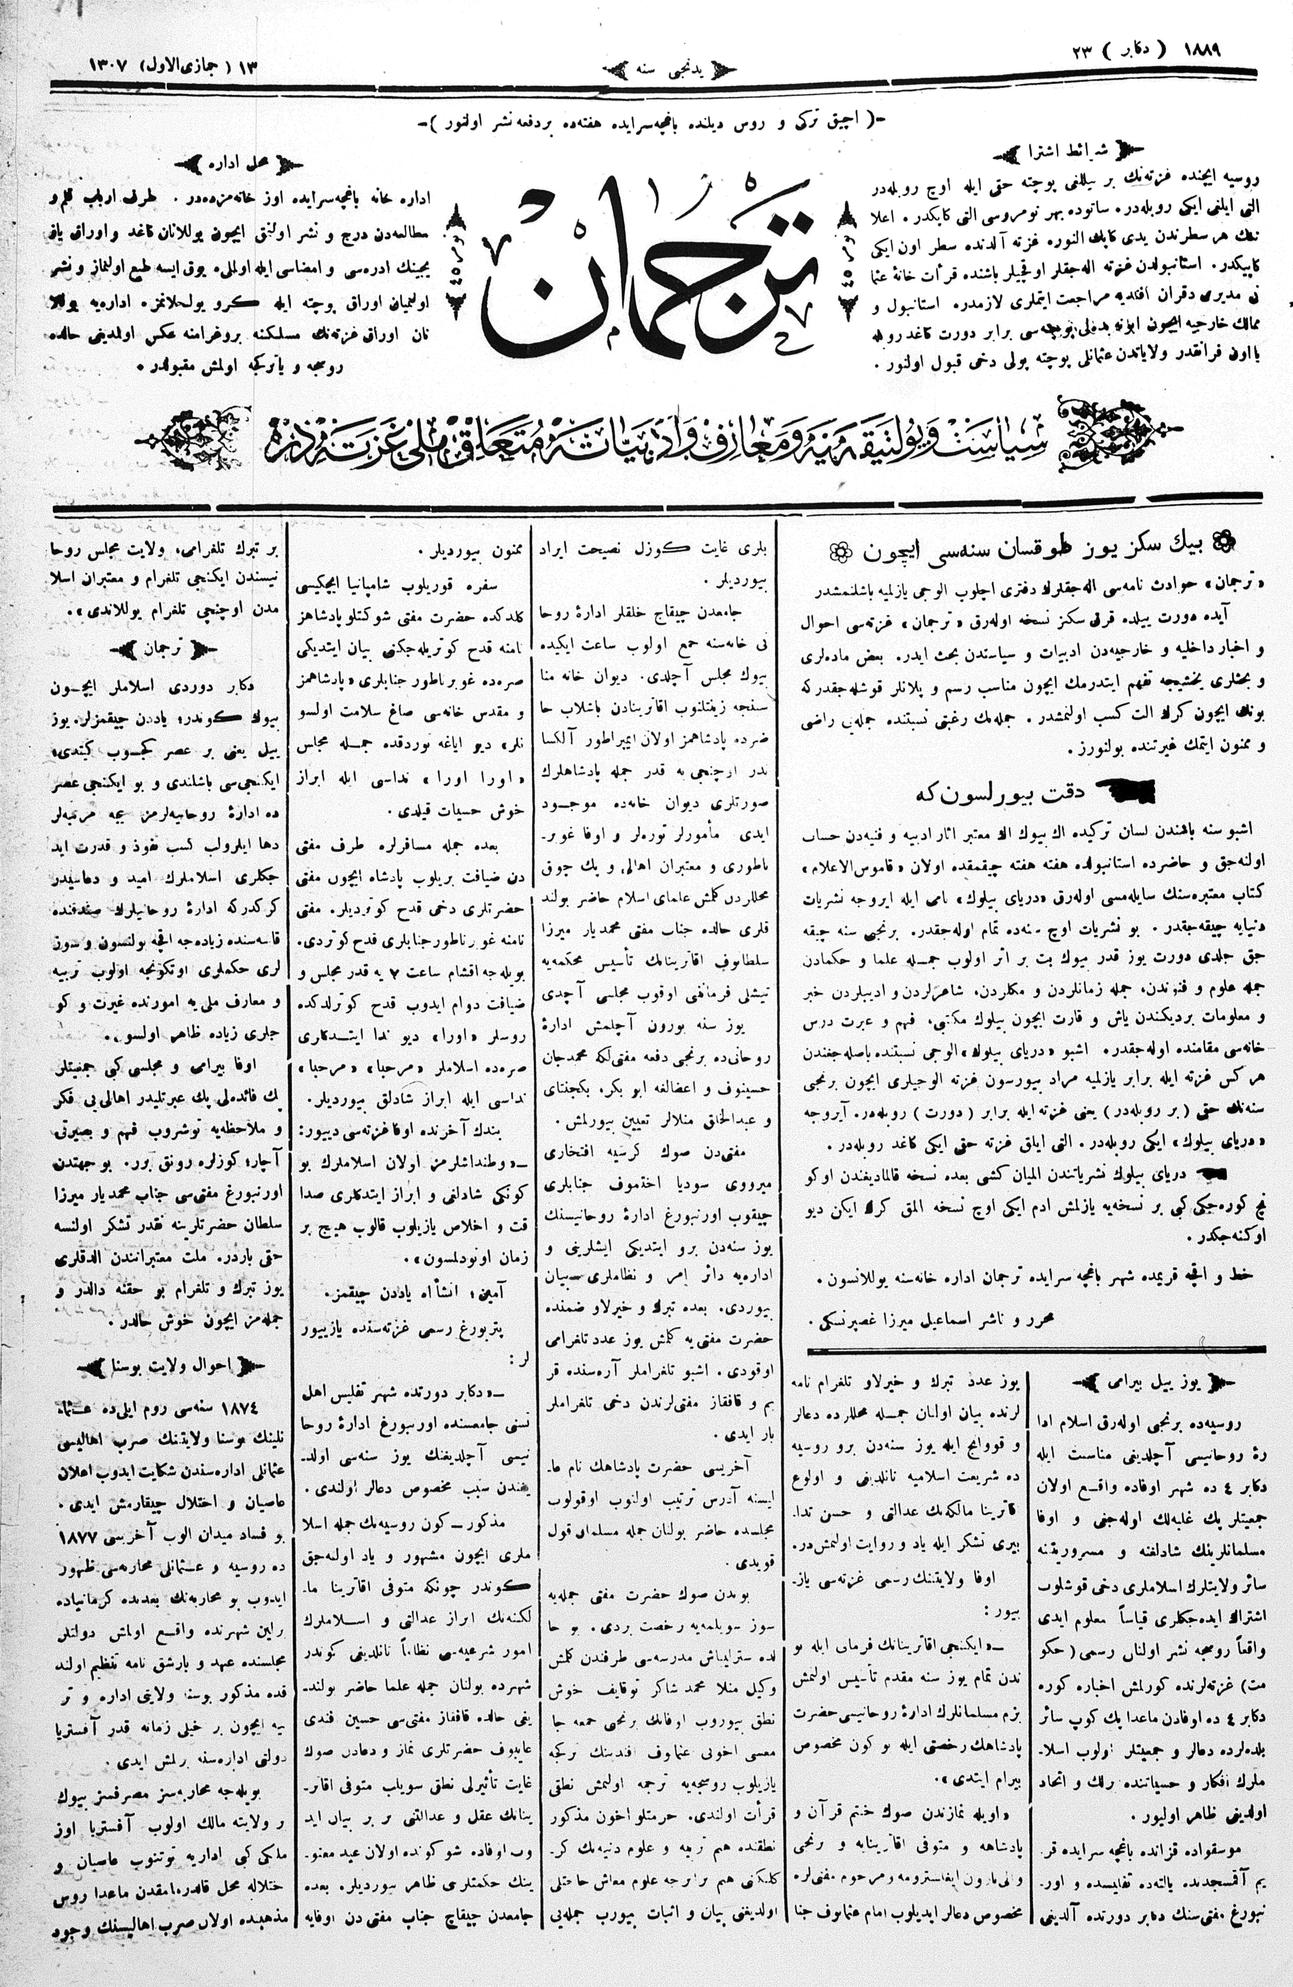 ١٨٨٩ ( دكابر ) ٢٣
يدنجى سنه
١٣ ( جمازى الاول ) ١٣٠٧
-( آچيق تركى و روس ديلنده باغچه‌سرايده هفته‌ده بر دفعه نشر اولنور )-
شرائط اشترا
روسيه ايچنده غزته‌نك بر ييللغى پوچته حقى ايله اوچ روبله‌در
التى ايلغى ايكى روبله‌در. ساتوده بهر نومروسى التى كاپكدر. اعلا
نڭ هر سطرندن يدى كاپك النوره غزته آلدنده سطر اون ايكى
كاپيكدر. استانبولدن غزته اله‌جقلر اوقچيلر باشنده قرأت خانهٔ عثما
نى مديرى دقران افنديه مراجعت ايتملرى لازمدره. استانبول و
ممالك خارجيه ايچون ابونه بدلى پوچه‌سى برابر دورت كاغد روبله
يا اون فرانقدر ولاياتدن عثمانلى پوچته پولى دخى قبول اولنور.
ترجمان
محل اداره
اداره خانه باغچه‌سرايده اوز خانه‌مزده‌در. طرف ارباب قلم و
مطالعه‌دن درج و نشر اولنق ايچون يوللانان كاغد و اوراق ياز
يجينك ادره‌سى و امضاسى ايله اولملى، يوق ايسه طبع اولنماز و نشر
اولنميان اوراق پوچته ايله كرو يوللانمز. اداره‌يه يوللا
نان اوراق غزته‌نك مسلكنه پروغرامنه عكس اولمديغى حالده
روسجه و ياتركجه اولمش مقبولدر.
سياست و پولتيقه‌يه و معارف و ادبياته متعلق ملى غزته‌در
بيك سكز يوز طوقسان سنه‌سى ايچون
«ترجمان» حوادث نامه‌سى اله‌جقلرك دفترى اچلوب الوجى يازلميه باشلنمشدر
آيده دورت ييلده قرق سكز نسخه اوله‌رق «ترجمان» غزته‌سى احوال
و اخبار داخليه و خارجيه‌دن ادبيات و سياستدن بحث ايدر. بعض ماده‌لرى
و بحثلرى يخشيجه تفهم ايتدرمك ايچون مناسب رسم و پلانلر قوشله‌جقدركه
بونك ايچون كرك الت كسب اولنمشدر. جمله‌نك رغبتى نسبتنده جمله‌يى راضى
و ممنون ايتمك غيرتنده بولنورز.
دقت بيورلسون كه
اشبو سنه باشندن لسان تركيده اك بيوك اك معتبر اثار ادبيه و فنيه‌دن حساب
اوله‌جق و حاضرده استانبولده هفته هفته چيقمقده اولان «قاموس الاعلام»
كتاب معتبره‌سنك سايله‌مسى اوله‌رق «درياى بيلوك» نامى ايله ايروجه نشريات
دنيايه چيقه‌جقدر. بو نشريات اوچ سنه‌ده تمام اوله‌جقدر. برنجى سنه چيقه
جق جلدى دورت يوز قدر بيوك بت بر اثر اولوب جمله علما و حكمادن
جمله علوم و فنوندن، جمله زمانلردن و مكلردن، شاعرلردن و اديبلردن خبر
و معلومات برديكندن ياش و قارت ايچون بيلوك مكتبى، فهم و عبرت درس
خانه‌سى مقامنده اوله‌جقدر. اشبو «درياى بيلوك» الوجى نسبتنده باصله‌جغندن
هر كس غزته ايله برابر يازلميه مراد بيورسون غزته الوجيلرى ايچون برنجى
سنه‌نك حقى (بر روبله‌در) يعنى غزته ايله برابر (دورت) روبله‌در. آيروجه
«درياى بيلوك» ايكى روبله‌در. التى ايلق غزته حقى ايكى كاغد روبله‌در.
درياى بيلوك نشرياتندن الميان كشى بعده نسخه قالماديغندن اوكو
نج كوره‌جكى كبى بر نسخه‌يه يازلمش ادم ايكى اوچ نسخه المق كرك ايكن ديو
اوكنه‌جكدر.
خط و اقچه قريمده شهر باغچه سرايده ترجمان اداره خانه‌سنه يوللانسون.
محرر و ناشر اسماعيل ميرزا غصپرنسكى.
يوز ييل بيرامى
روسيه‌ده برنجى اوله‌رق اسلام ادا
رهٔ روحانيسى آچلديغى مناسبت ايله
دكابر ٤ ده شهر اوفاده واقع اولان
جمعيتلر پك غلبه‌لك اوله‌جغى و اوفا
مسلمانلرينك شادلغنه و مسروريتنه
سائر ولايتلرك اسلاملرى دخى قوشلوب
اشتراك ايده‌جكلرى قياساً معلوم ايدى
واقعاً روسجه نشر اولنان رسمى (حكو
مت) غزته‌لرنده كورلمش اخباره كوره
دكابر ٤ ده اوفادن ماعدا پك كوپ سائر
بلده‌لرده دعالر و جمعيتلر اولوب اسلا-
ملرك افكار و حسياتنده برلك و اتحاد
اولديغى ظاهر اوليور.
موسقواده قزانده باغچه سرايده قر
يم آقمسجدده يالته‌ده تفليسده و اور-
نبورغ مفتى‌سنك دكابر دورتده آلديغى
يوز عدد تبرك و خيرلاو تلغرام نامه
لرنده بيان اولنان جمله محللرده دعالر
و قووانچ ايله يوز سنه‌دن برو روسيه
ده شريعت اسلاميه تانلديغى و اولوغ
قاترينا مالكه‌نك عدالتى و حسن تدا-
بيرى تشكر ايله ياد و روايت اولنمش‌در.
اوفا ولايتنك رسمى غزته‌سى ياز-
يور:
— «ايكنجى اقاترينانك فرمانى ايله بو
ندن تمام يوز سنه مقدم تأسيس اولنمش
بزم مسلمانلرك ادارهٔ روحانيسى حضرت
پادشاهك رخصتى ايله بو كون مخصوص
بيرام ايتدى».
«اويله نمازندن صوك ختم قرآن و
پادشاهه و متوفى اقاترينايه و برنجى
والى بارون ايغلسترومه و مرحوم مفتى‌لره
مخصوص دعالر ايديلوب امام عثمانوف جنا
بلرى غايت كوزل نصيحت ايراد
بيورديلر.
جامعدن چيقاج خلقلر ادارهٔ روحا
نى خانه‌سنه جمع اولوب ساعت ايكيده
بيوك مجلس آچلدى. ديوان خانه منا
سبجه زينتلنوب اقاترينادن باشلاب حا
ضرده پادشاهمز اولان ايمپراطور آلكسا
ندر اوچنجى‌يه قدر جمله پادشاهلرك
صورتلرى ديوان خانه‌ده موجود
ايدى. مأمورلر توره‌لر و اوفا غوبر-
ناطورى و معتبران اهالى و پك چوق
محللردن كلمش علماى اسلام حاضر بولند
قلرى حالده جناب مفتى محمديار ميرزا
سلطانوف اقاترينانك تأسيس محكمه‌يه
تيشلى فرمانى اوقوب مجلسى آچدى
يوز سنه بورون آچلمش ادارهٔ
روحانى‌ده برنجى دفعه مفتى‌لكه محمدجان
حسينوف و اعضالغه ابو بكر، بكچنتاى
و عبدالخلق منلالر تعيين بيورلمش.
مفتى‌دن صوك كرسيه افتخارى
ميرووى سوديا اختموف جنابلرى
چيقوب اورنبورغ ادارهٔ روحانيسنك
يوز سنه‌دن برو ايتديكى ايشلرينى و
اداره‌يه دائر امر و نظاملرى بيان
بيوردى. بعده تبرك و خيرلاو ضمنده
حضرت مفتى‌يه كلمش يوز عدد تلغرامى
اوقودى. اشبو تلغراملر آره‌سنده قر
يم و قافقاز مفتى‌لرندن دخى تلغراملر
بار ايدى.
آخريسى حضرت پادشاهك نام عا-
ليسنه آدرس ترتيب اولنوب اوقولوب
مجلسده حاضر بولنان جمله مسلمان قول
قويدى.
بوندن صوك حضرت مفتى جمله‌يه
سوز سويلمه‌يه رخصت بردى. بو حا
لده سترليباش مدرسه‌سى طرفندن كلمش
وكيل منلا محمد شاكر توقايف خوش
نطق بيوروب اوفانك برنجى جمعه جا
معسى اخونى عثمانوف افندينك تركجه
يازيلوب روسجه‌يه ترجمه اولنمش نطقى
قرأت اولندى. حرمتلو اخون مذكور
نطقنده هم تربيه و علوم دنيه‌نك كر-
كلكنى هم برابرجه علوم معاش حاجتلى
اولديغنى بيان و اثبات بيوروب جمله‌يى
ممنون بيورديلر.
سفره قوريلوب شامپانيا ايچكيسى
كلدكده حضرت مفتى شوكتلو پادشاهمز
نامنه قدح كوتريله‌جكنى بيان ايتديكى
صره‌ده غوبرناطور جنابلرى «پادشاهمز
و مقدس خانه‌سى صاغ سلامت اولسو
نلر» ديو اياغه توردقده جمله مجلس
«اورا اورا» نداسى ايله ابراز
خوش حسيات قيلدى.
بعده جمله مسافرلره طرف مفتى
دن ضيافت بريلوب پادشاه ايچون مفتى
حضرتلرى دخى قدح كوترديلر. مفتى
نامنه غوبرناطور جنابلرى قدح كوتردى.
بويله‌جه اقشام ساعت ٧ يه قدر مجلس و
ضيافت دوام ايدوب قدح كوترلدكده
روسلر «اورا» ديو ندا ايتدكلرى
صره‌ده اسلاملر «مرحبا» «مرحبا»
نداسى ايله ابراز شادلق بيورديلر.
بندك آخرنده اوفا غزته‌سى دييور:
— «وطنداشلرمز اولان اسلاملرك بو
كونكى شادلغى و ابراز ايتدكلرى صدا
قت و اخلاص يازيلوب قالوب هيچ بر
زمان اونودلمسون».
آمين؛ انشأالله ياددن چيقمز.
پتربورغ رسمى غزته‌سنده يازييور
لر:
— «دكابر دورتده شهر تفليس اهل
سنى جامعسنده اورنبورغ ادارهٔ روحا
نيسى آچلديغنك يوز سنه‌سى اولد-
يغندن سبب مخصوص دعالر اولندى.
مذكور كون روسيه‌نك جمله اسلا
ملرى ايچون مشهور و ياد اوله‌جق
كوندر چونكه متوفى اقاترينا ما-
لكه‌نك ابراز عدالتى و اسلاملرك
امور شرعيه‌سى نظاماً تانلديغى كوندر
شهرده بولنان جمله علما حاضر بولند-
يغى حالده قافقاز مفتى‌سى حسين افندى
غايبوف حضرتلرى نماز و دعادن صوك
غايت تأثيرلى نطق سويلب متوفى اقاتر-
ينانك عقل و عدالتنى بر بر بيان ايد
وب اوفاده شو كونده اولان عيد معنو-
ينك حكمتلرى ظاهر بيورديلر. بعده
جامعدن چيقاج جناب مفتى‌دن اوفايه
بر تبرك تلغرامى، ولايت مجلس روحا
نيسندن ايكنجى تلغرام و معتبران اسلا
مدن اوچنجى تلغرام يوللاندى».
ترجمان
دكابر دوردى اسلاملر ايچون
بيوك كوندر؛ ياددن چيقمزلر. يوز
ييل يعنى بر عصر كچوب كيتدى؛
ايكنجى‌سى باشلندى و بو ايكنجى عصر
ده ادارهٔ روحانيه‌لرمز نيجه مرتبه‌لر
دها ايلرولب كسب نفوذ و قدرت ايد
جكلرى اسلاملرك اميد و دعاسيدر
كركدركه ادارهٔ روحانيلرك صندقنده
قاسه‌سنده زياده‌جه اقچه بولنسون و سوز
لرى حكملرى اوتكونجه اولوب تربيه
و معارف مليه امورنده غيرت و كو
جلرى زياده ظاهر اولسون.
اوفا بيرامى و مجلسى كبى جمعيتلر
پك فائده‌لى پك عبرتليدر اهالى‌يى فكر
و ملاحظه‌يه توشروب فهم و بصيرتى
آچار؛ كوزلره رونق برر. بو جهتدن
اورنبورغ مفتى‌سى جناب محمديار ميرزا
سلطان حضرتلرينه نقدر تشكر اولنسه
حقى باردر. ملت معتبرانندن الدقلرى
يوز تبرك و تلغرام بو حقنه دالدر و
جمله‌مز ايچون خوش حالدر.
احوال ولايت بوسنا
١٨٧٤ سنه‌سى روم ايلى‌ده عثما-
نلينك بوسنا ولايتنك صرب اهاليسى
عثمانلى اداره‌سندن شكايت ايدوب اعلان
عاصيان و اختلال چيقارمش ايدى.
بو فساد ميدان الوب آخريسى ١٨٧٧
ده روسيه و عثمانلى محاربه‌سى ظهور
ايدوب بو محاربه‌نك بعدنده كرمانياده
برلين شهرنده واقع اولمش دولتلر
مجلسنده عهد و بارشق نامه تنظيم اولند
قده مذكور بوسنا ولايتى اداره و تر
بيه ايچون بر خيلى زمانه قدر آفستريا
دولتى اداره‌سنه برلمش ايدى.
بويله‌جه محاربه‌سز مصرفسز بيوك
بر ولايته مالك اولوب آفستريا اوز
ملكى كبى اداريه توتنوب عاصيان و
اختلاله محل قالدرمامقدن ماعدا روس
مذهبنده اولان صرب اهاليسنك وجود